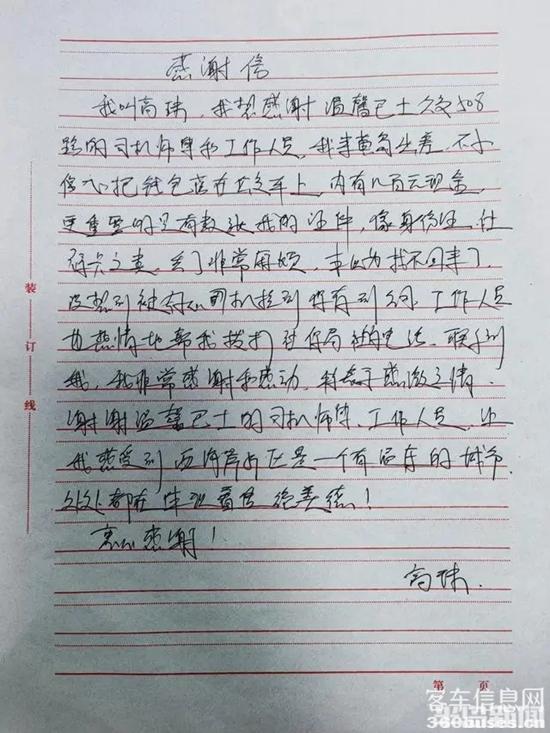 感谢信
我叫高珠，我想感谢温馨巴士公交508
路的司机师傅和工作人员，我来青岛出差，不小
心把钱包落在公交车上，内有几百元现金，
更重要的是有数张我的证件，像身份证、
之类，丢了非常麻烦，本以为找不回来了，
没想到被好心司机捡到 工作人员
热情地帮我拨打 电话，联系到
我，我非常感谢和感动，特表示感激之情，
谢谢温馨巴士的司机师傅、工作人员，让
我感受到西海岸 区是一个有温度的城市，
处处都在 美德！
衷心感谢！
高珠.
装
订
线
第 页
客车信息网
360buses.cn